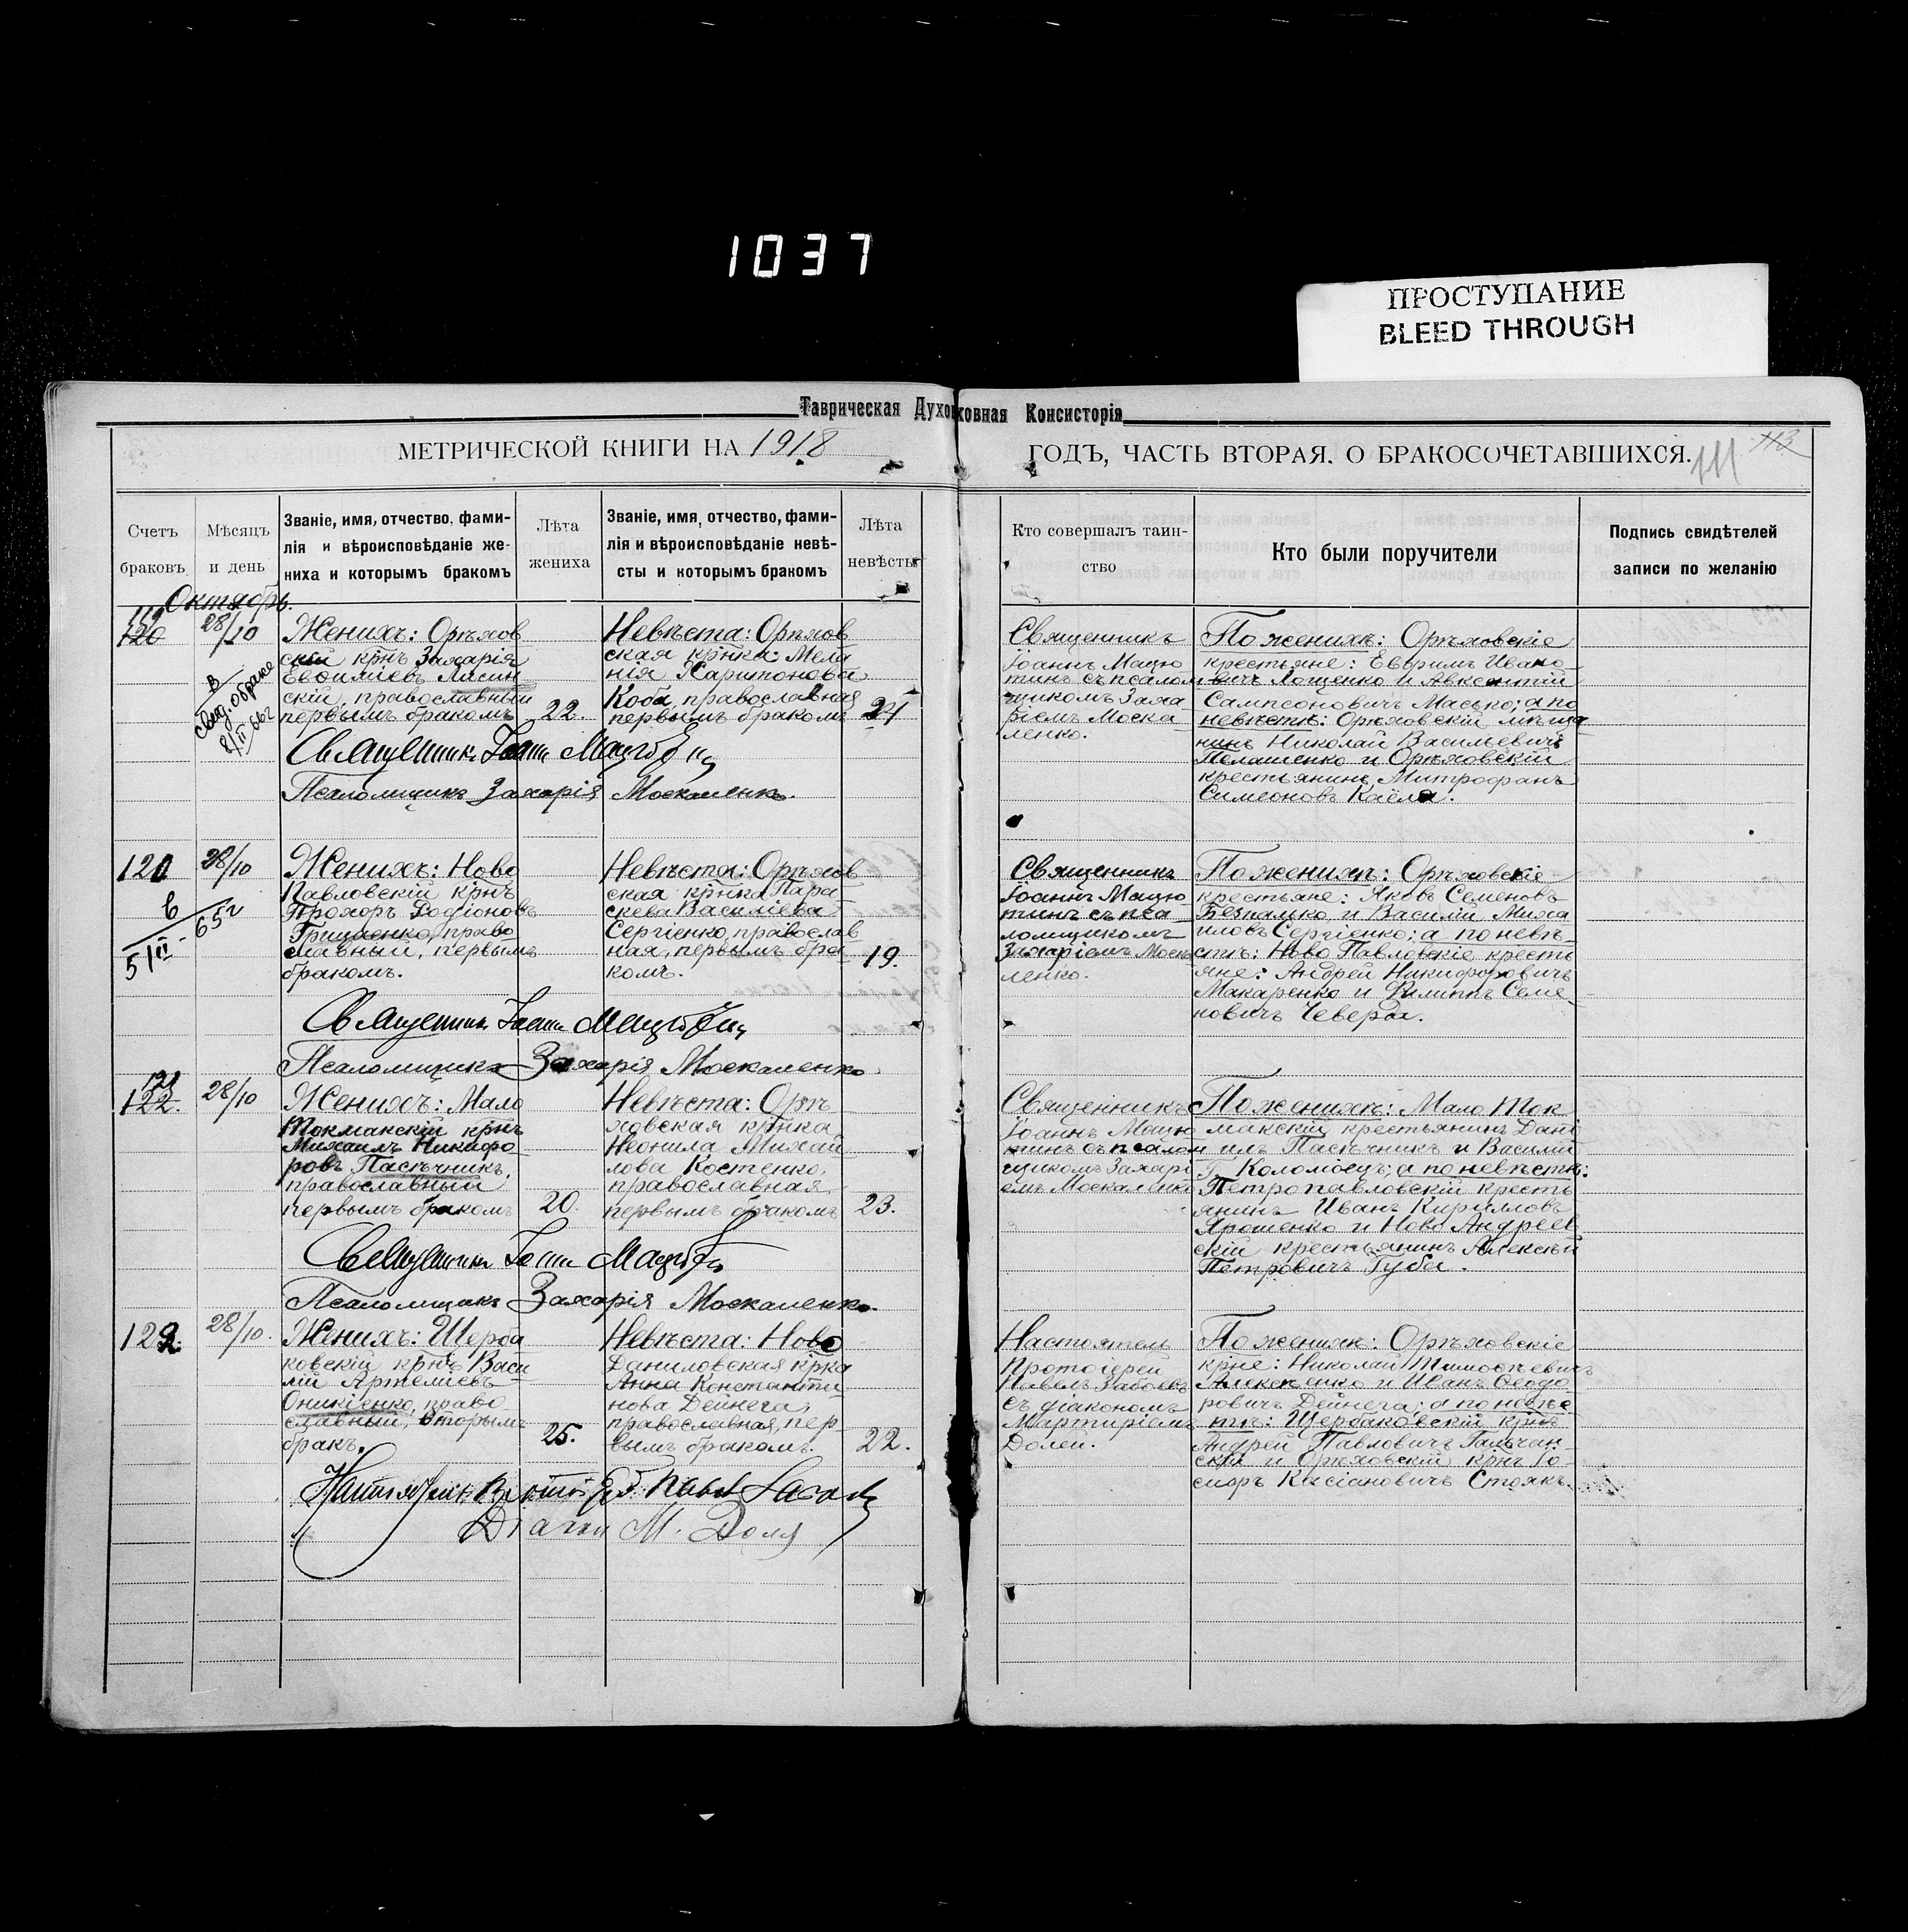 1037
ПРОСТУПАНИЕ
BLEED THROUGH
Таврическая Духовная Консисторія
МЕТРИЧЕСКОЙ КНИГИ НА 1918
ГОДЪ, ЧАСТЬ ВТОРАЯ, О БРАКОСОЧЕТАВШИХСЯ.
111
113
Счетъ
браковъ
Мѣсяцъ
и день
Званіе, имя, отчество, фами-
лія и вѣроисповѣданіе же-
ниха и которымъ бракомъ
Лѣта
жениха
Званіе, имя, отчество, фами-
лія и вѣроисповѣданіе невѣ-
сты и которымъ бракомъ
Лѣта
невѣсты
Кто совершалъ таин-
ство
Кто были поручители
Подпись свидѣтелей
записи по желанію
Октябрь.
119
120
28/10
В
свид. о браке
8/II 66г
Женихъ: Орѣхов
скій крнъ Захарія
Евѳиміевъ Лясин
скій, православный
первымъ бракомъ
22.
Невѣста: Орѣхов
ская крнка: Мела
нія Харитонова
Коба, православная
первымъ бракомъ
21
Священникъ
Іоаннъ Мацю
тинъ съ псалом
щикомъ Заха
ріемъ Моска
ленко.
По женихѣ: Орѣховскіе
крестьяне: Евѳримъ Ивано
вичъ Лощенко и Авксентій
Сампсоновичъ Масько; а по
невѣстѣ: Орѣховскій мѣща
нинъ Николай Васильевичъ
Пелашенко и Орѣховскій
крестьянинъ Митрофанъ
Симеоновъ Каёла.
Священникъ Іоаннъ Мацютинъ
Псаломщикъ Захарія Москаленко.
120
28/10
в
5/II - 65г
Женихъ: Ново
Павловскій крнъ
Прохоръ Родіоновъ
Грищенко, право
славный, первымъ
бракомъ.
Невѣста: Орѣхов
ская крнка Пара
скева Василіева
Сергіенко, православ
ная, первымъ бра
комъ.
19.
Священникъ
Іоаннъ Мацю
тинъ съ пса
ломщикомъ
Захаріемъ Моска
ленко.
По женихѣ: Орѣховскіе
крестьяне: Яковъ Семеновъ
Безпалько и Василій Миха
иловъ Сергіенко; а по невѣ-
стѣ: Ново Павловскіе кресть
яне: Андрей Никифоровичъ
Макаренко и Филиппъ Семе
новичъ Чеверда.
Священникъ Іоаннъ Мацютинъ
Псаломщикъ Захарія Москаленко.
121
122.
28/10
Женихъ: Мало
Токмакскій крнъ
Михаилъ Никифо
ровъ Пасѣчникъ,
православный
первымъ бракомъ
20.
Невѣста: Орѣ
ховская крнка
Неонила Михай
лова Костенко,
православная
первымъ бракомъ
23.
Священникъ
Іоаннъ Мацю
тинъ съ псалом
щикомъ Захарі
емъ Москаленко
По женихѣ: Мало Ток
макскій крестьянинъ Дані
илъ Пасѣчникъ и Василій
Г. Коломоецъ; а по невѣстѣ:
Петропавловскій кресть
янинъ Иванъ Кирилловъ
Ярошенко и Ново Андреев
скій крестьянинъ Алексѣй
Петровичъ Губа.
Священникъ Іоаннъ Мацютинъ
Псаломщикъ Захарія Москаленко.
122.
28/10.
Женихъ: Щерба
ковскій крнъ Васи
лій Артеміевъ
Оникіенко, право
славный, вторымъ
бракъ.
25.
Невѣста: Ново
Даниловская крка
Анна Константи
нова Дейнега,
православная, пер
вымъ бракомъ.
22.
Настоятель
Протоіерей
Павелъ
съ діакономъ
Мартиріемъ
Долей.
По женихѣ: Орѣховскіе
крне: Николай Тимоѳеевичъ
Алексѣенко и Иванъ Ѳеодо
ровичъ Дейнега; а по невѣс
тѣ: Щербаковскій крнъ
Андрей Павловичъ Гальчан
скій и Орѣховскій крнъ Іо
сифъ Касіановичъ Стоякъ.
Настоятель Протоіерей Павелъ
Діаконъ М. Доля